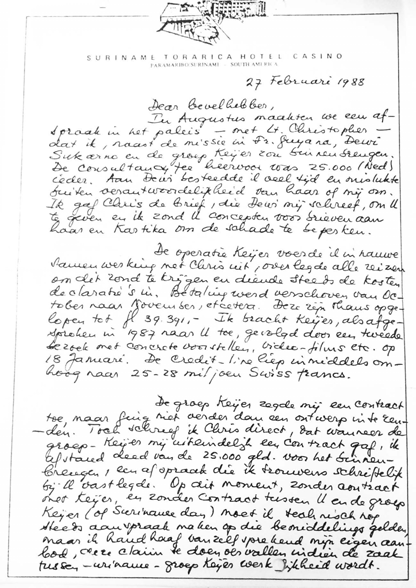 SURINAME TORARICA HOTEL CASINO
PARAMARIBO SURINAME SOUTH AMERICA
27 Februari 1988
Dear Bevelhebber,
In Augustus maakten we een af-
spraak in het paleis – met Lt. Christopher –
dat ik, naast de missie in Fr. Guyana, Dewi
Sukarno en de groep Keijer zou binnenbrengen.
De consultancy fee hiervoor was 25.000 (Ned)
ieder. Aan Dewi besteedde ik veel tijd en mislukte
buiten verantwoordelijkheid van haar of mij om.
Ik gaf Chris de brief, die Dewi mij schreef, om U
te geven en ik zond U concepten voor brieven aan
haar en Kartika om de schade te beperken.
De operatie Keijer voerde ik in nauwe
samenwerking met Chris uit, overlegde alle reizen
om dit rond te krijgen en diende steeds de kosten
declaratie's in. Betaling werd verschoven van Oc-
tober naar November, etcetera. Deze zijn thans opge-
lopen tot fl 39.391,– Ik bracht Keijer, als afge-
sproken in 1987 naar U toe, gevolgd door een tweede
bezoek met concrete voorstellen, video-films etc. op
18 januari. De Credit-line liep inmiddels om-
hoog naar 25-28 miljoen Swiss francs.
De groep Keijer zegde mij een contract
toe, maar ging niet verder dan een ontwerp in te zen-
den. Toch schreef ik Chris direct, dat wanneer de
groep-Keijer mij uiteindelijk een contract gaf, ik
afstand deed van de 25.000 gld. voor het binnen-
brengen, een afspraak die ik trouwens schriftelijk
bij U vastlegde. Op dit moment, zonder contract
met Keijer, en zonder contract tussen U en de groep
Keijer (of Suriname dan) moet ik technisch nog
steeds aanspraak maken op die bemiddelingsgelden
maar ik handhaaf vanzelfsprekend mijn eigen aan-
bod, deze claim te doen vervallen indien de zaak
tussen Suriname-groep Keijer werkelijkheid wordt.